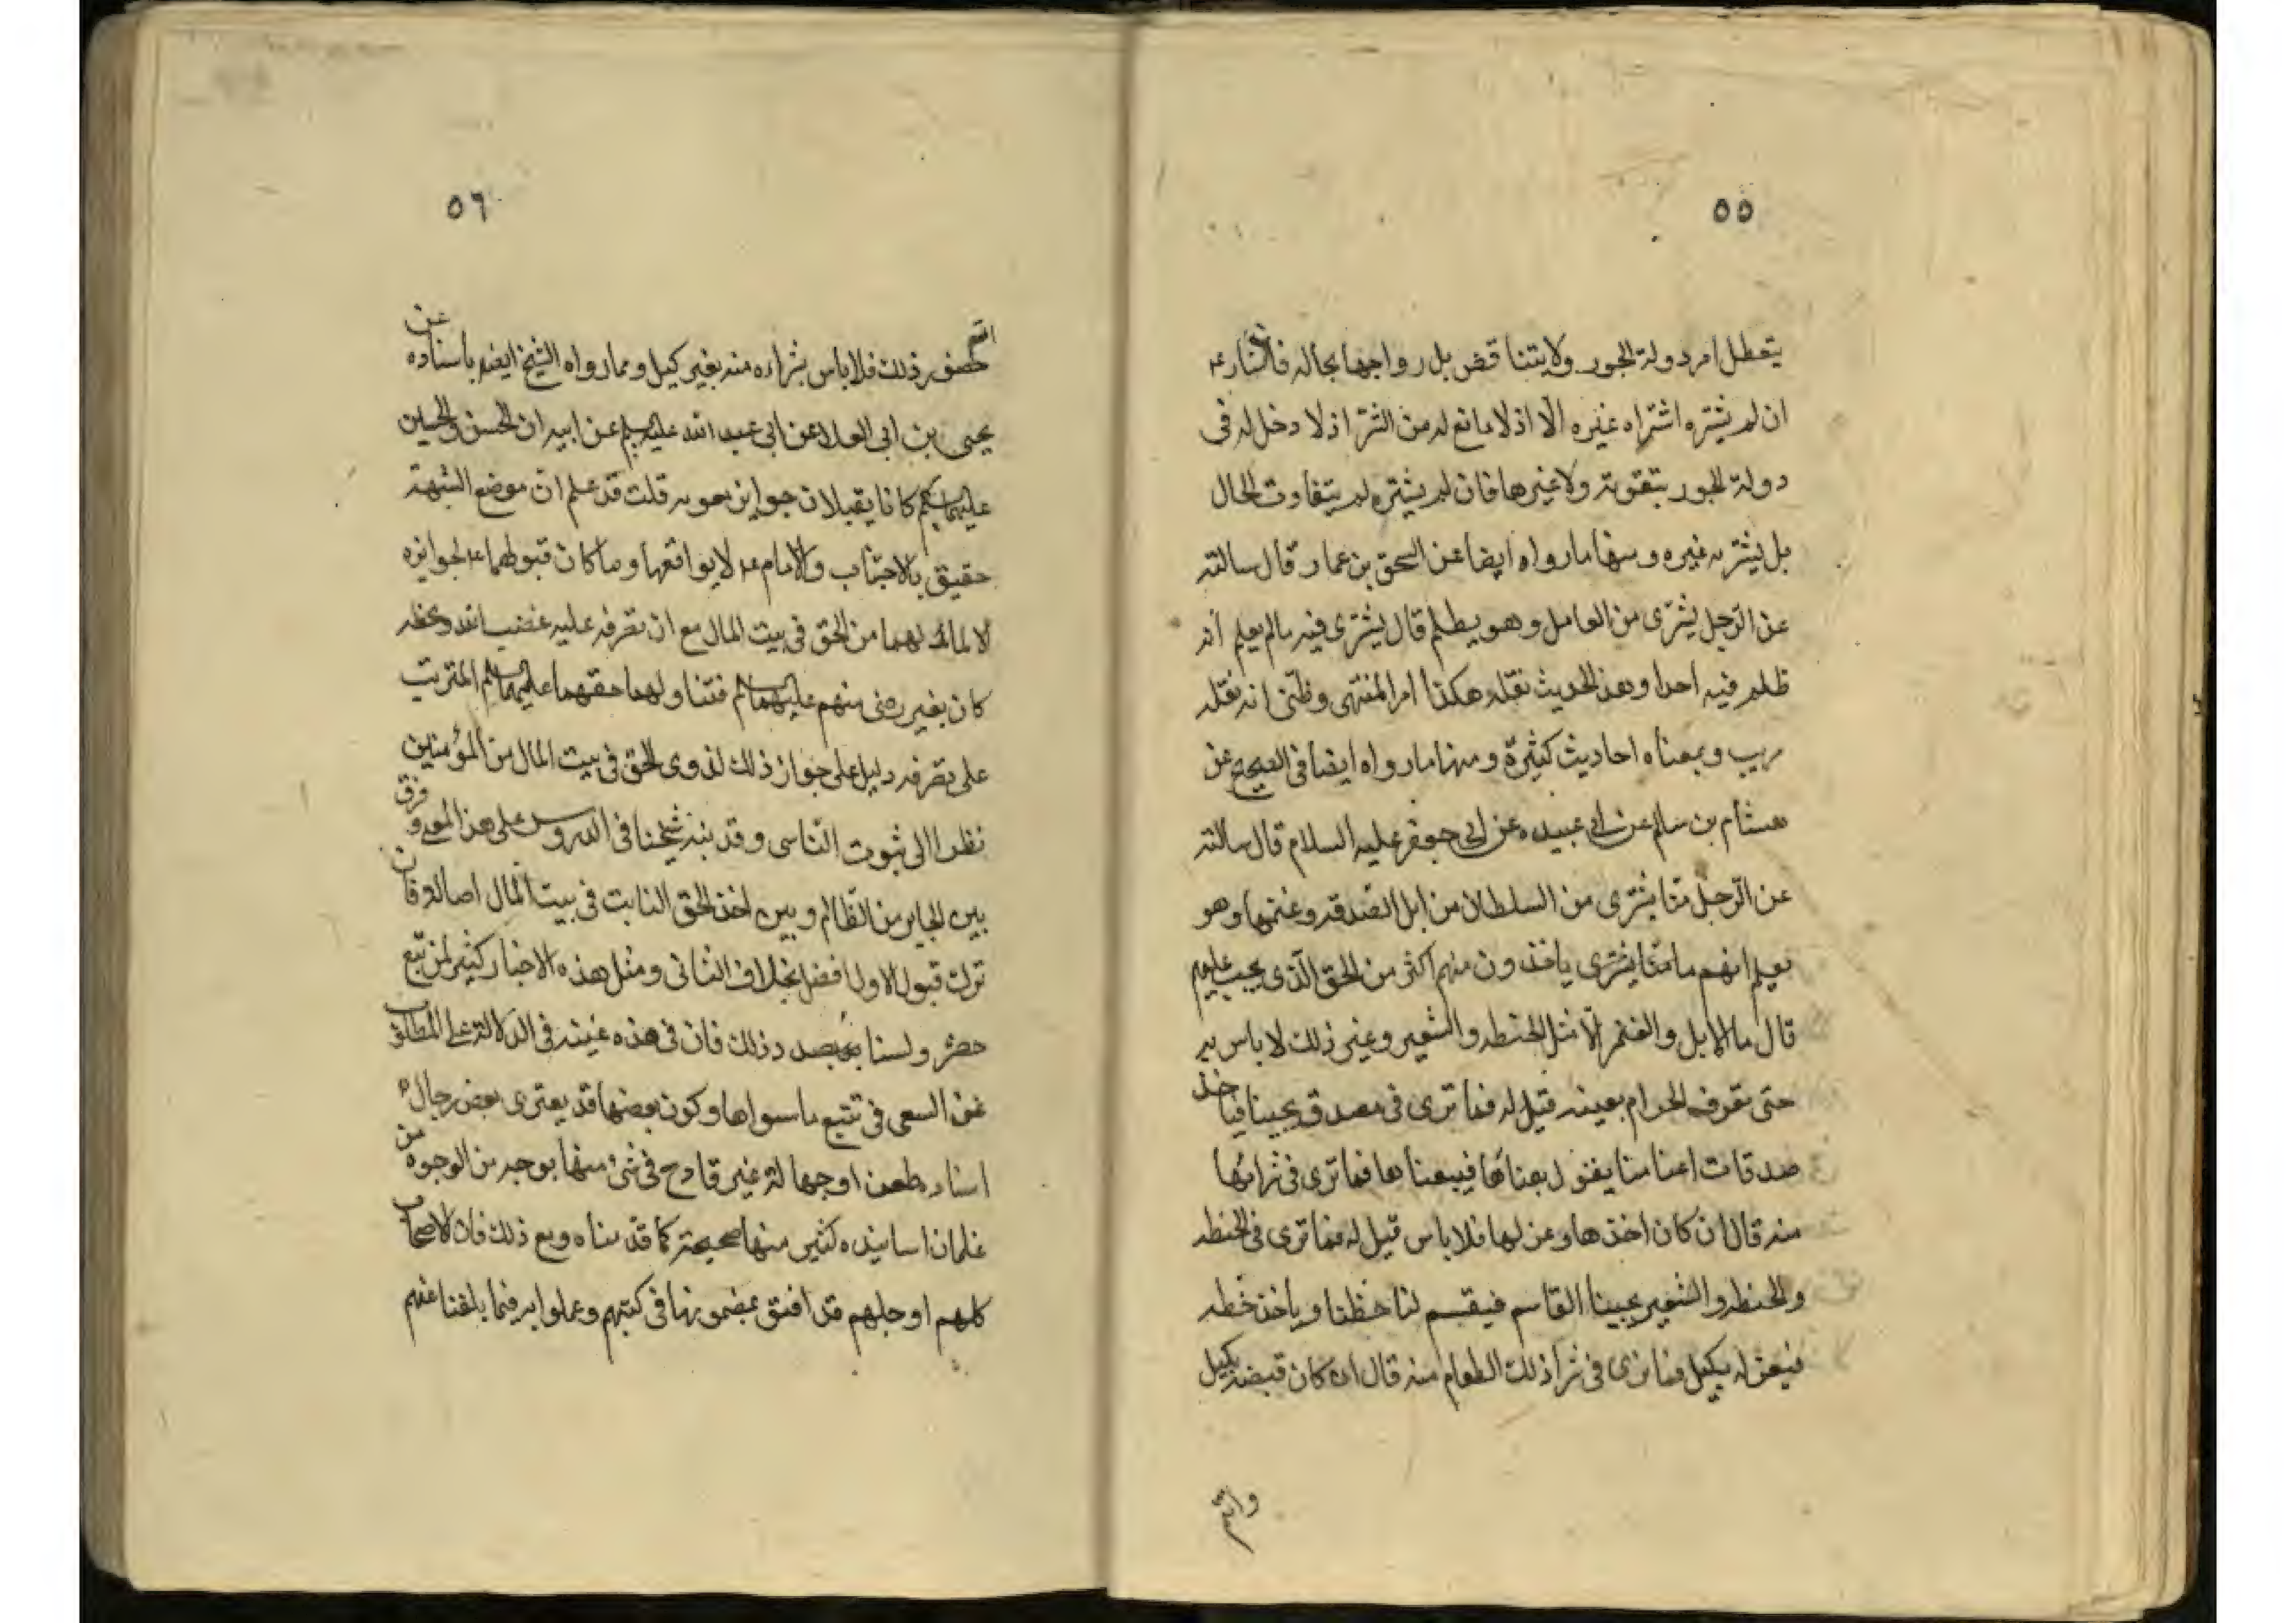 ٥٥
يتعطل امر دولة الجور ولا يتناقض بل رواجها بحاله
ان لم يشتره اشتراه غيره الّا اذ لا مانع له من الشرا اذ لا دخل له فى
دولة الجور بتقوية ولا غيرها فان لم يشتره لم يتفاوت الحال
بل يشتريه غيره ومنها ما رواه ايضا عن اسحق بن عمار قال سالته
عن الرجل يشترى من العامل وهو يظلم قال يشترى فيه مالم يعلم انه
ظلم فيه احدا وهذ الحديث نقله هكذا المنتهى وظنى انه نقله
وبمعناه احاديث كثيرة ومنها ما رواه ايضا فى الصحيح عن
هشام بن سالم عن ابى عبيده عن ابى جعفر عليه السلام قال سالته
عن الرّجل منّا يشترى من السلطان من ابل الصدقه وغنمها وهو
يعلم انهم يأخذون منهم اكثر من الحق الّذى يجب عليهم
قال ما الابل والغنم الّا مثل الحنطه والشعير وغير ذلك لا باس به
حتى تعرف الحرام بعينه قيل له فما ترى فى مصدق يجيينا فياخذ
صدقات اغنامنا يقول بعناها فيبيعناها فما ترى فى شرائها
منه قال ان كان اخذها وعزلها فلا باس قيل له فما ترى فى الحنطه
والحنطه والشعير يجيينا القاسم فيقسم لنا حظنا وياخذ حظه
فيعزله بكيل فما ترى فى شرا ذلك الطعام منه قال ان كان قبضه بكيل
وانتم
٥٦
انتم حضور ذلك فلا باس بشراءه منه بغير كيل ومما رواه الشيخ ايضه باسناده عن
يحيى بن ابى العلا عن ابى عبد الله عليه السلم عن ابيه ان الحسن والحسين
عليهما السلم كانا يقبلان جوايز معويه قلت قد علم ان موضع الشبهة
حقيق بالاجتناب والامام ع لا يواقعها وما كان قبولهما ع لجوايزه
الا لما لهما من الحق فى بيت المال مع ان تصرفه عليه غضب الله
كان بغير رضى منهم عليهما السلم فتناولهما حقهما عليهما السلم المترتب
على تصرفه دليل على جواز ذلك لذوى الحق فى بيت المال من المؤمنين
نظرا الى ثبوت التاسى وقد نبه شيخنا فى الدروس على هذ المعنى وفرق
بين الجاير من الظالم وبين اخذ الحق الثابت فى بيت المال اصالة وان
ترك قبول الاول افضل بخلاف الثانى ومثل هذه الاخبار كثير لمن تتبع
ولسنا بصدد ذلك فان فى هذه غينه فى الدلالة على المطلوب
عن السعى فى تتبع ما سواها وكون بعضها قد يعترى بعض رجال
اسناده طعن او جهالة غير قادح فى شئ منها بوجه من الوجوه من
غلمان اسانيده كثير منها صحيحة كما قدمناه ومع ذلك فان الاصحاب
كلهم او جلهم قد افتوا بمضمونها فى كتبهم وعملوا به فيما بلغنا عنهم